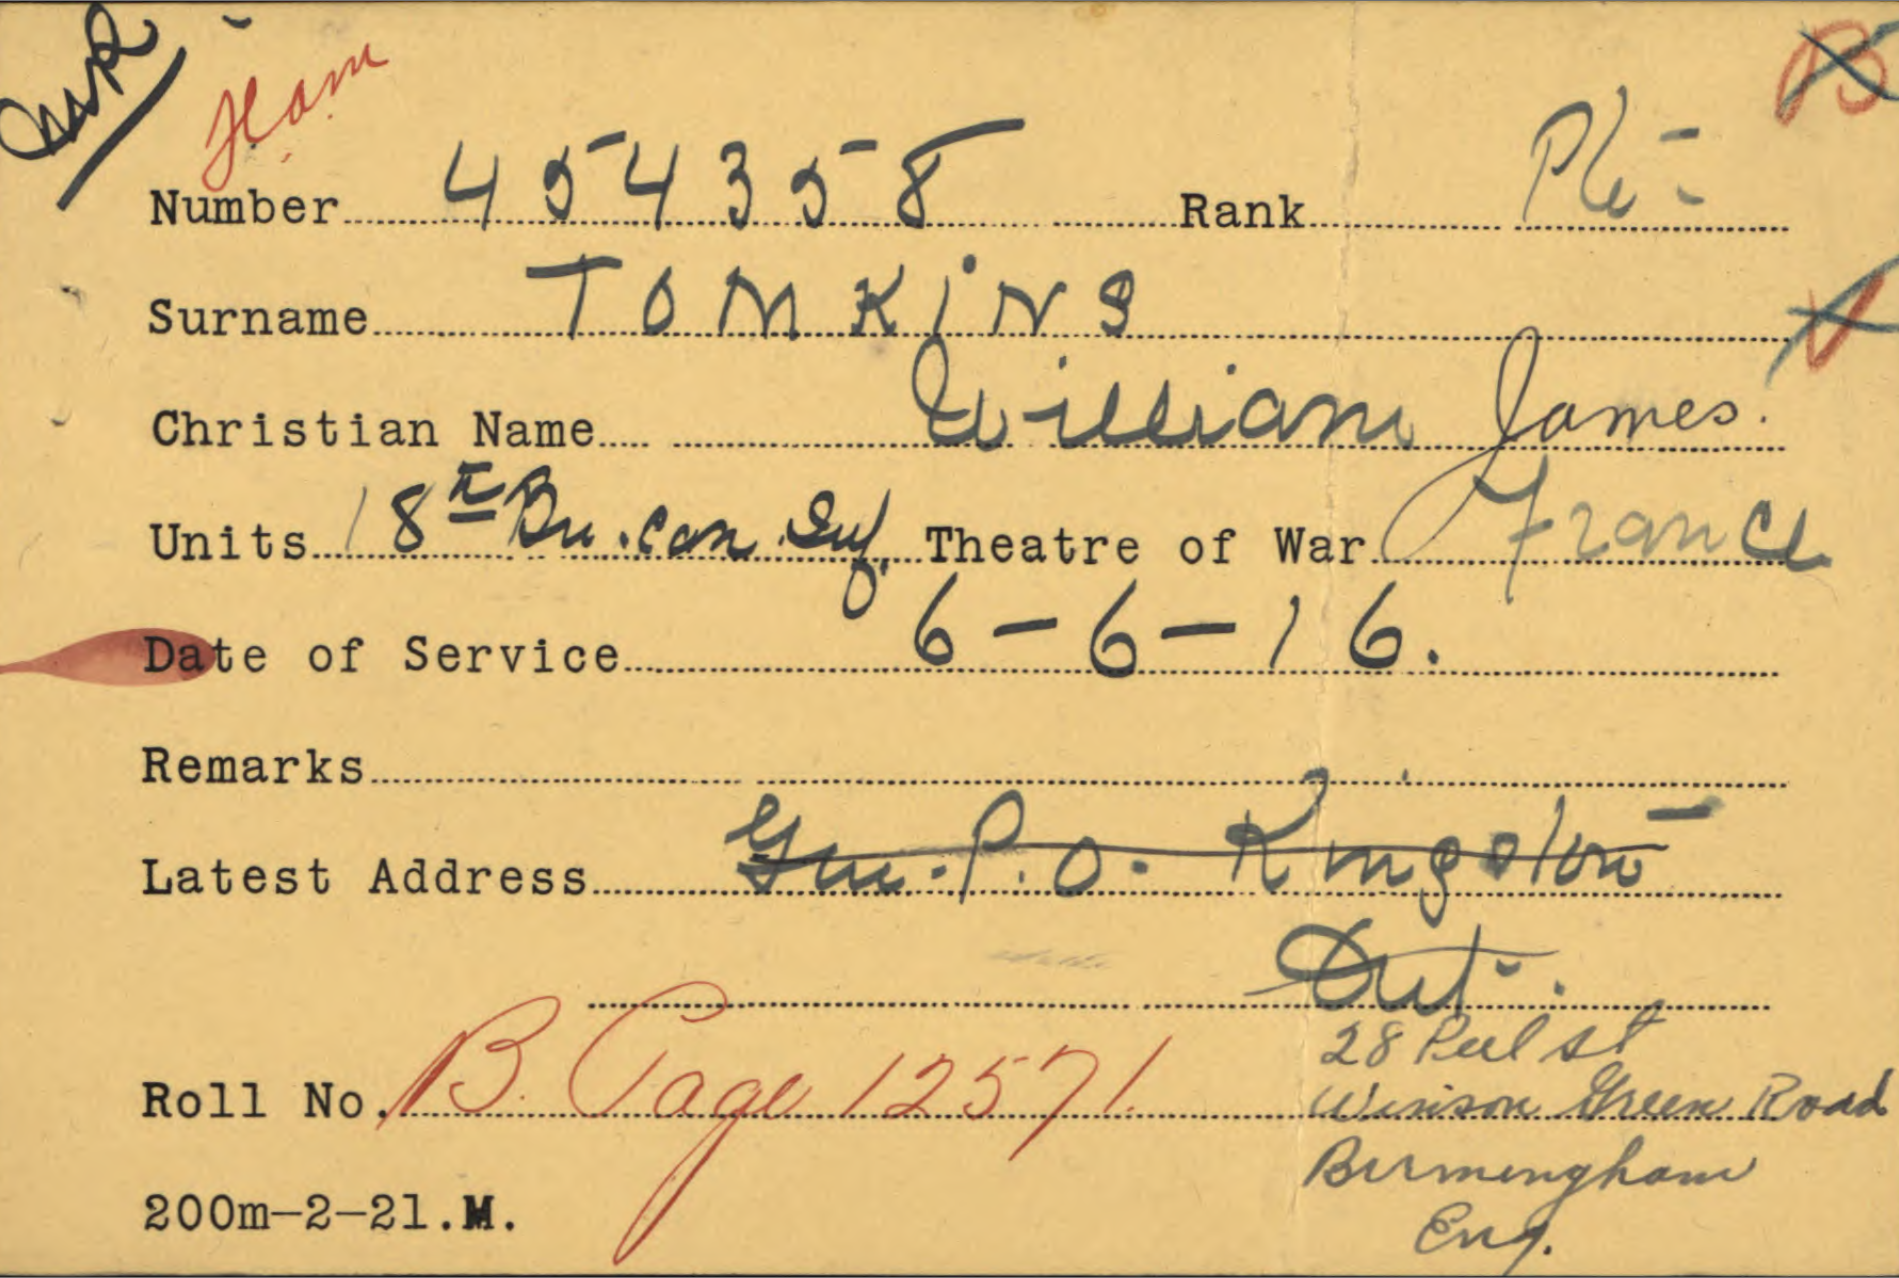 Ham B
Number 454358 Rank Pte-
Surname TOMKiNS V
Christian Name William James.
Units 18th Bn. Can. Inf. Theatre of War France
Date of Service 6-6-16.
Remarks
Latest Address Gen. P.O. Kingston
Ont.
28 Peel st
Roll No. B. Page 12571. Winson Green Road
Birmingham
200m-2-21.M. Eng.